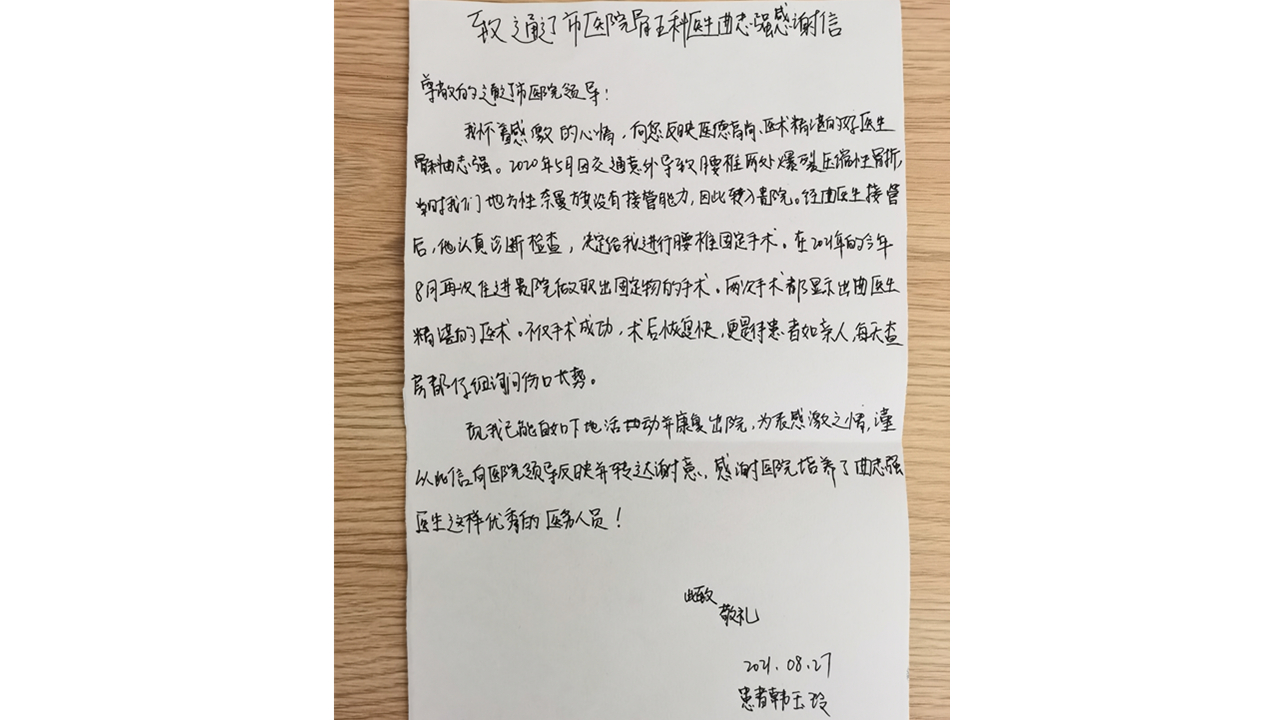 致通辽市医院骨五科医生曲志强感谢信
尊敬的通辽市医院领导：
我怀着感激的心情，向您反映医德高尚、医术精湛的好医生
骨科曲志强。2020年5月因交通意外导致腰椎两处爆裂压缩性骨折，
当时我们地方性奈曼旗没有接管能力，因此转入贵院。经曲医生接管
后，他认真诊断检查，决定给我进行腰椎固定手术。在2021年的今年
8月再次住进贵院做取出固定物的手术。两次手术都显示出曲医生
精湛的医术。不仅手术成功，术后恢复快，更是待患者如亲人，每天查
房都仔细询问伤口大势。
现我已能自如下地活动并康复出院，为表感激之情，谨
以此信向医院领导反映并转达谢意，感谢医院培养了曲志强
医生这样优秀的医务人员！
此致
敬礼
2021.08.27
患者韩玉玲